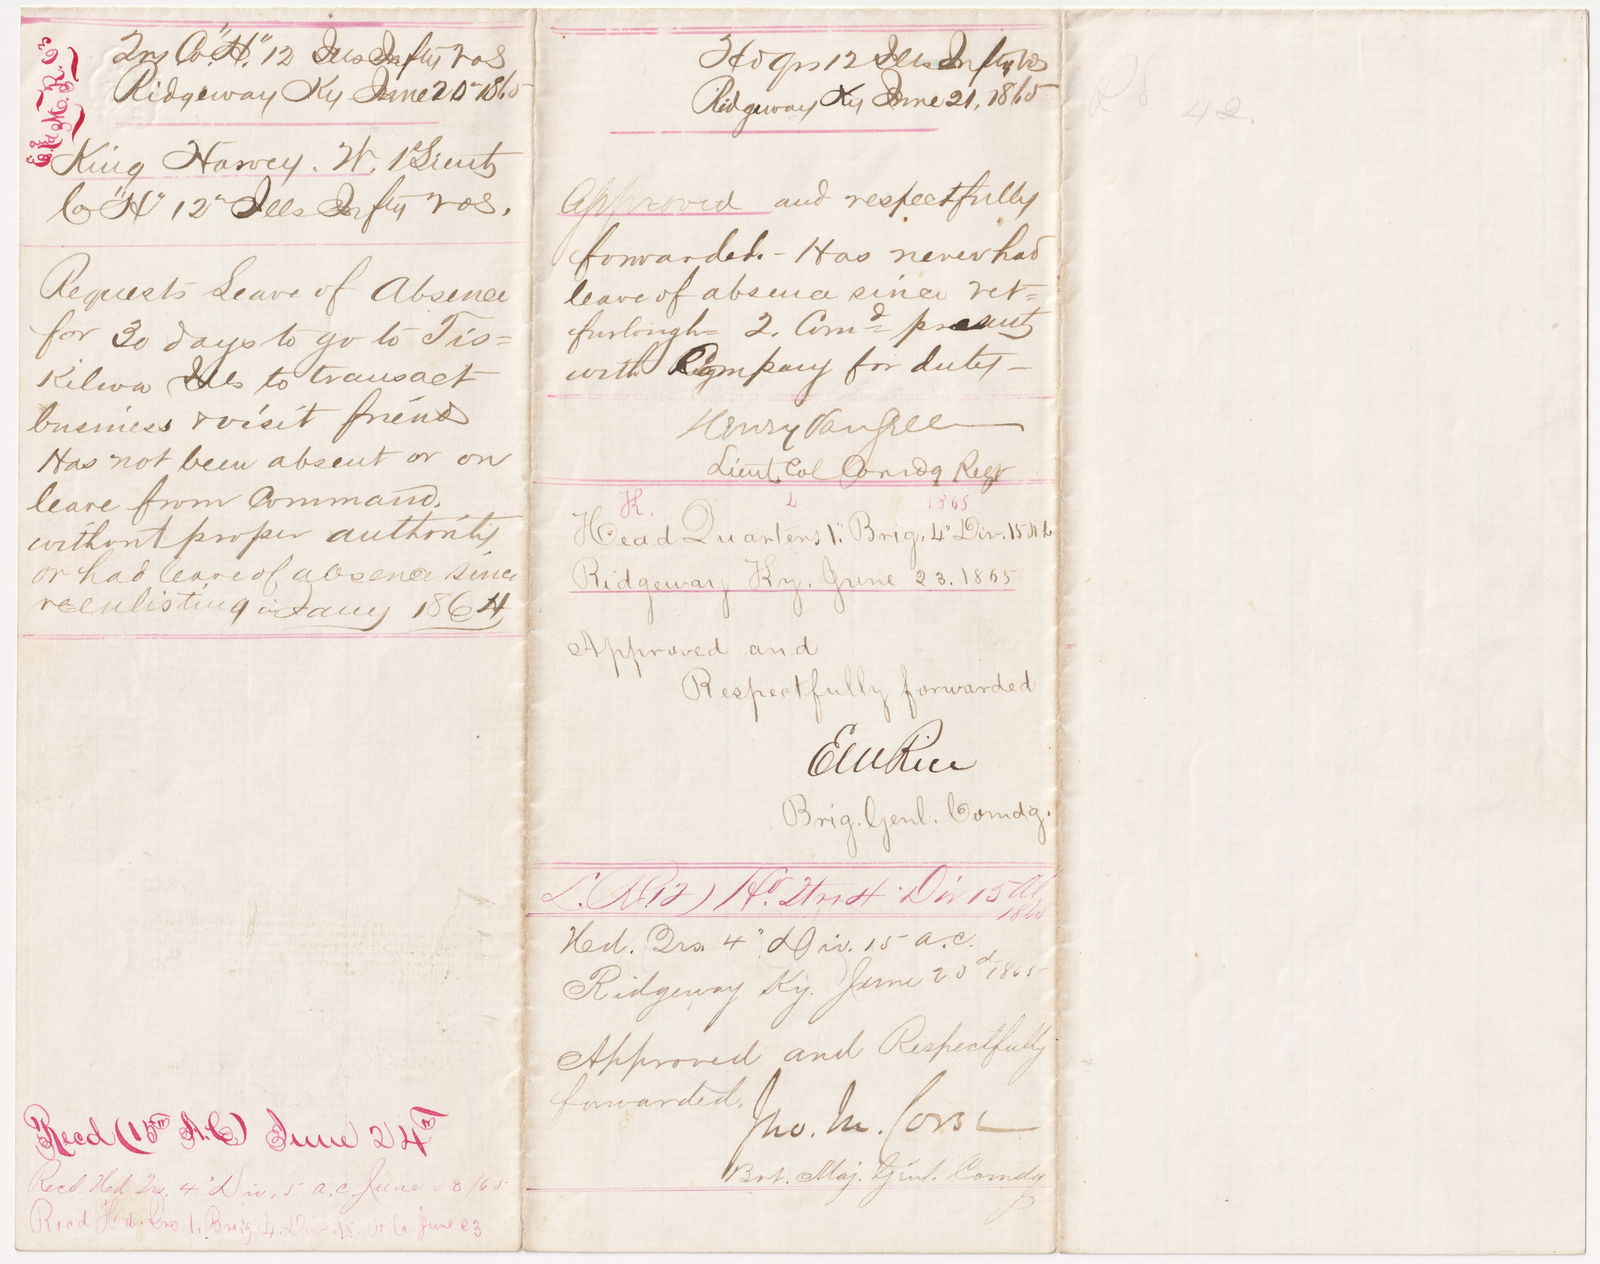 Qrs Co. "H." 12 Ills Infty Vols
Ridgeway Ky June 20 1865
King Harvey. W. 1st Lieut
Co "H" 12" Ills Infty Vols.
Requests Leave of Absence
for 30 days to go to Tis=
kilwa Ills to transact
business & visit friends
Has not been absent or on
leave from Command.
without proper authority
or had leave of absence since
reenlisting in Jany 1864
Recd (15th A.C) June 24th
Recd. Hed. Qrs. 4" Div. 15 A.C. June 23/65
Recd Hd. Qrs. 1. Brig. 4. Div. 15. A.C. June 23
Hd Qrs 12 Ills Infty Vols
Ridgeway Ky June 21, 1865
Approved and respectfully
forwarded. - Has never had
leave of absence since vet=
furlough= 2. Comd= present
with Company for duty -
Henry Van Sellar
Lieut. Col Comdg Regt
H. 2. 1865
Head Quarters 1". Brig. 4" Div. 15 A.C.
Ridgeway Ky. June 23. 1865
Approved and
Respectfully forwarded
E W Rice
Brig. Genl. Comdg.
Div 15 AC
1865
Hed. Qrs. 4" Div. 15 A.C.
Ridgeway Ky. June 23d 1865
Approved and Respectfully
forwarded.
Jno. M. Corse
Bvt. Maj. Genl. Comdg
42.